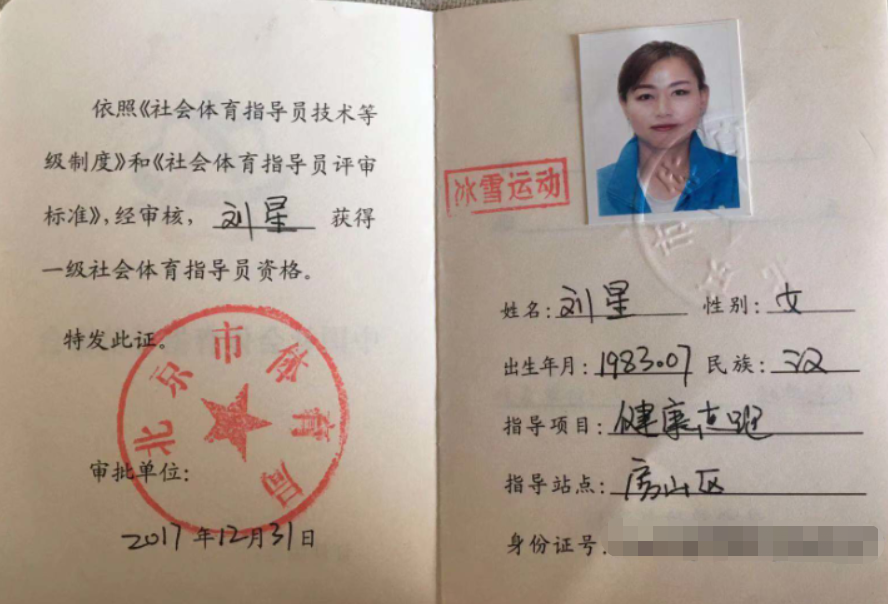 依照《社会体育指导员技术等
级制度》和《社会体育指导员评审
标准》,经审核, 刘星 获得
一级社会体育指导员资格。
特发此证。
北京市体育局
审批单位:
2017年12月31日
冰雪运动
姓名: 刘星 性别: 女
出生年月: 1983.07 民族: 汉
指导项目: 健康走跑
指导站点: 房山区
身份证号: